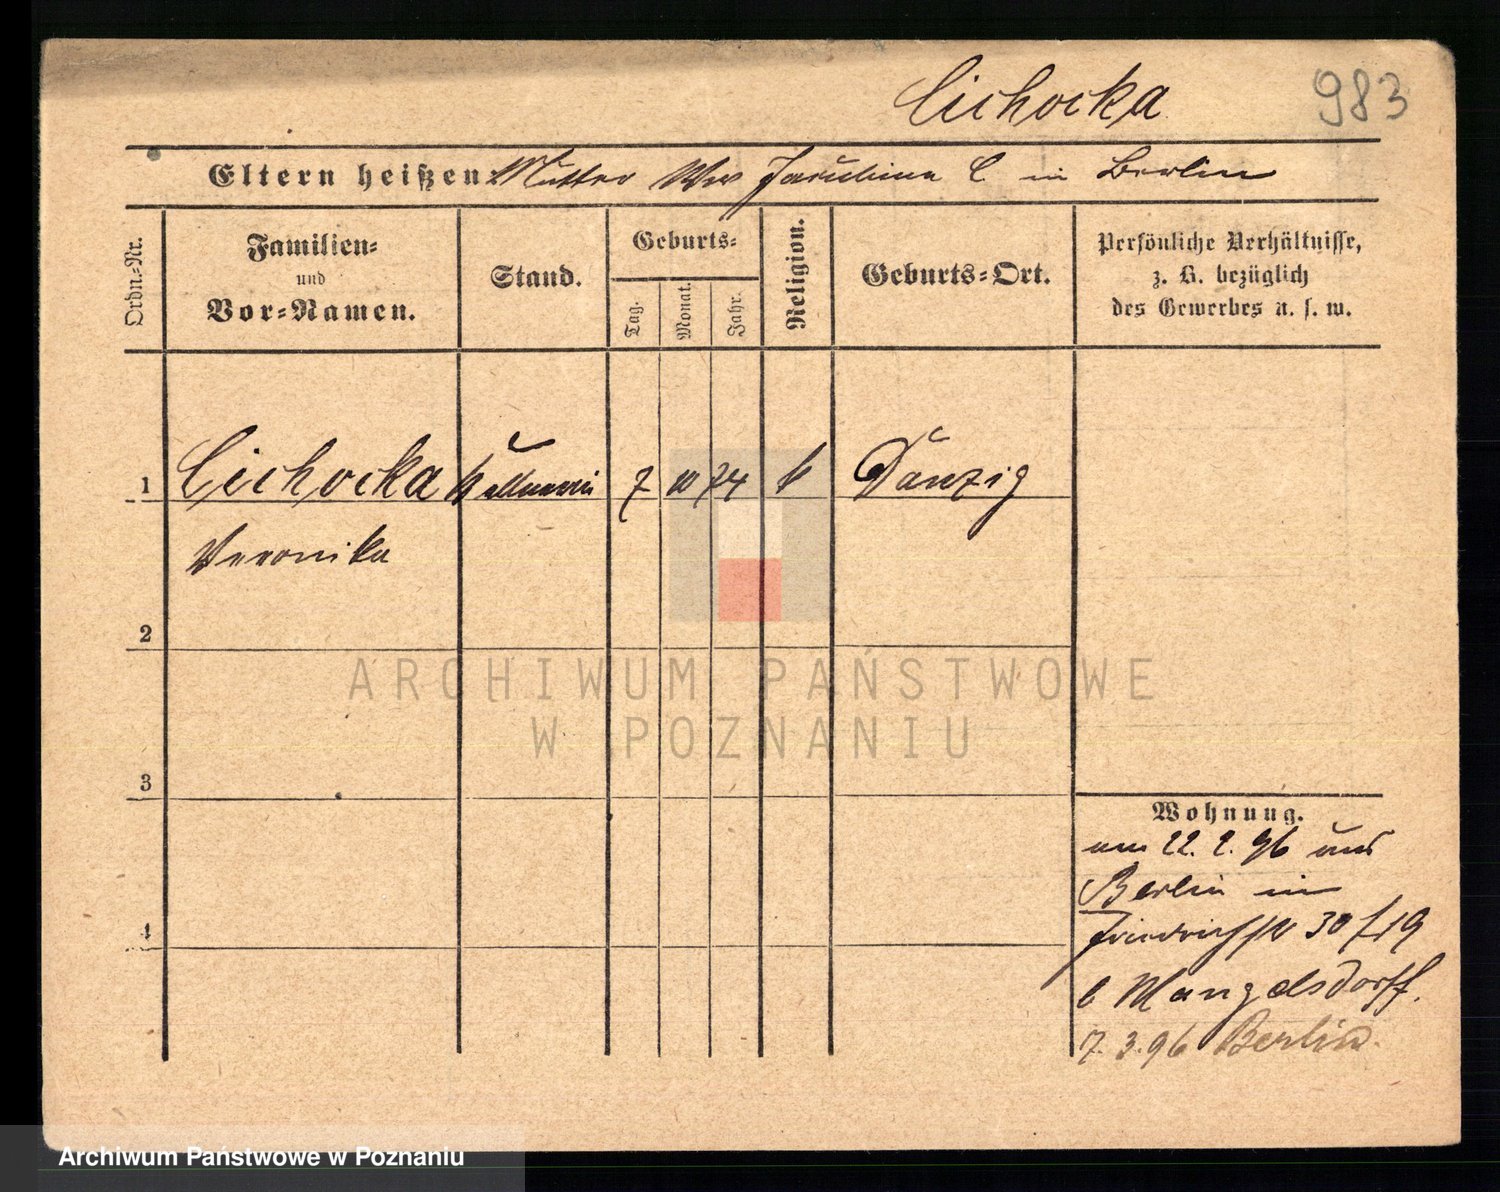 Cichocka
983
Eltern heißen: Mutter Ww C. in Berlin
Ordn.-Nr.
Familien-
und
Vor-Namen.
Stand.
Geburts-
Tag.
Monat.
Jahr.
Religion.
Geburts-Ort.
Persönliche Verhältnisse,
z. B. bezüglich
des Gewerbes u. s. w.
1 Cichocka Kellnerin 7 10 74 k Danzig
Veronika
2
3
4
Wohnung.
am 22. 2. 96 aus
Berlin in
Friedrichstr 30 / 19
b Mangelsdorff.
7. 3. 96 Berlin.
ARCHIWUM PAŃSTWOWE
W POZNANIU
Archiwum Państwowe w Poznaniu